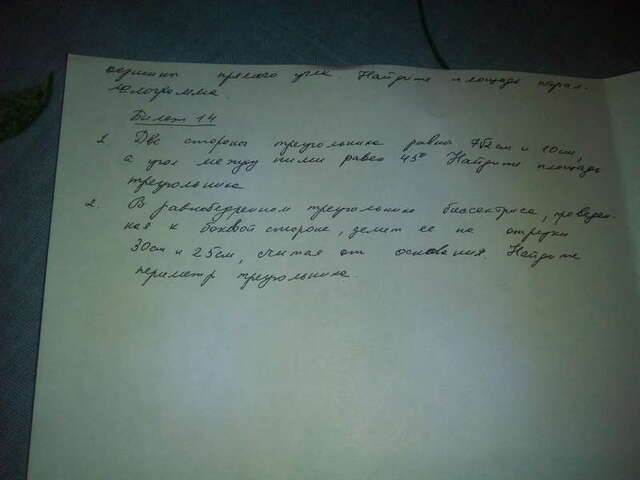 вершины прямого угла Найдите площадь парал-
лелограмма.
Билет 14
1. Две стороны треугольника равны 7√2см и 10см,
а угол между ними равен 45° Найдите площадь
треугольника
2. В равнобедренном треугольнике биссектриса, проведен-
ная к боковой стороне, делит ее на отрезки
30см и 25см, считая от основания. Найдите
периметр треугольника.